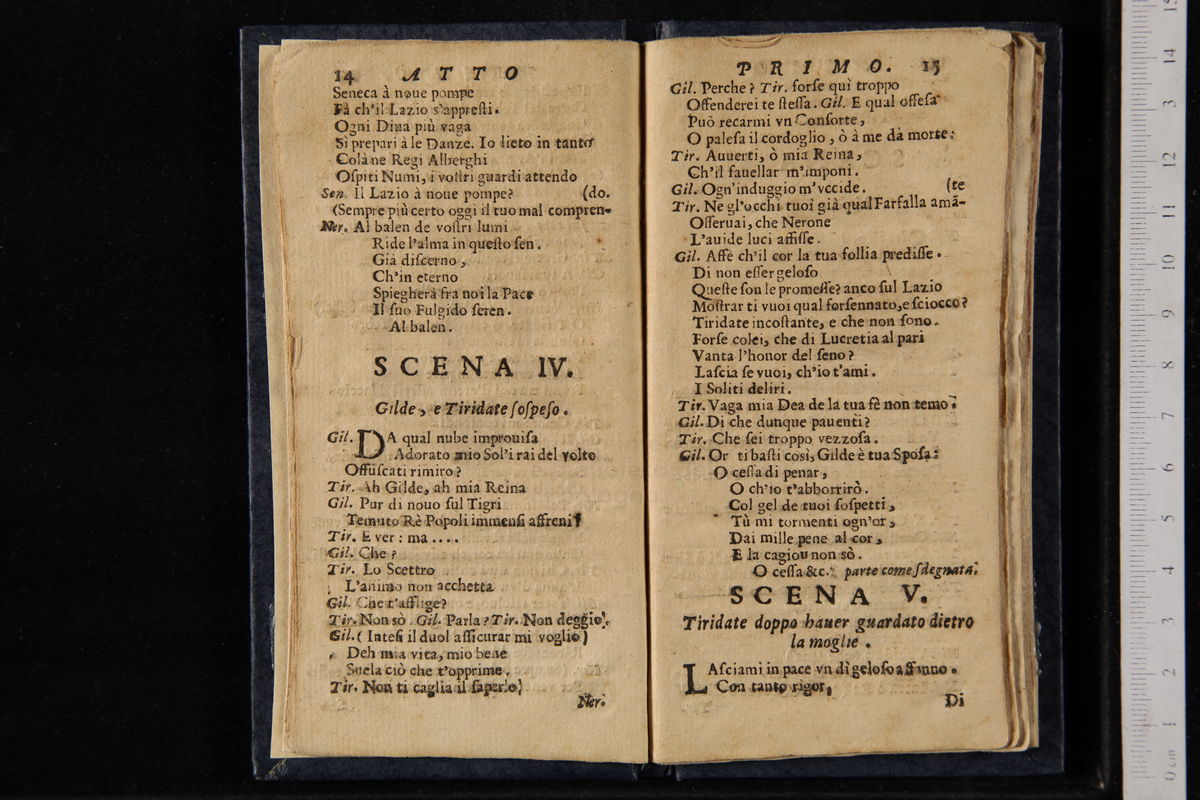 14 ATTO
Seneca à noue pompe
Fà ch'il Lazio s'appreſti.
Ogni Diua più vaga
Si prepari à le Danze. Io lieto in tanto
Colà ne Regi Alberghi
Oſpiti Numi, i voſtri guardi attendo
Sen. Il Lazio à noue pompe? (do.
(Sempre più certo oggi il tuo mal compren-
Ner. Al balen de voſtri lumi
Ride l'alma in queſto ſen.
Già diſcerno,
Ch'in eterno
Spiegherà fra noi la Pace
Il ſuo Fulgido ſeren.
Al balen.
SCENA IV.
Gilde, e Tiridate ſoſpeſo.
Gil. DA qual nube improuiſa
Adorato mio Sol'i rai del volto
Offuſcati rimiro?
Tir. Ah Gilde, ah mia Reina
Gil. Pur di nouo ſul Tigri
Temuto Rè Popoli immenſi affreni?
Tir. E ver: ma ....
Gil. Che?
Tir. Lo Scettro
L'animo non acchetta
Gil. Che t'affluge?
Tir. Non sò. Gil. Parla? Tir. Non deggio.
Gil. (Inteſi il duol afſicurar mi voglio)
Deh mia vita, mio bene
Suela ciò che t'opprime.
Tir. Non ti caglia il ſaperlo)
Ner.
PRIMO. 15
Gil. Perche? Tir. forſe quì troppo
Offenderei te ſteſſa. Gil. E qual offeſa
Può recarmi vn Conſorte,
O paleſa il cordoglio, ò à me dà morte.
Tir. Auuerti, ò mia Reina,
Ch'il fauellar m'imponi.
Gil. Ogn'induggio m'vccide. (te
Tir. Ne gl'occhi tuoi già qual Farfalla amã-
Oſſeruai, che Nerone
L'auide luci affiſſe.
Gil. Affè ch'il cor la tua follia prediſſe.
Di non eſſer geloſo
Queſte ſon le promeſſe? anco ſul Lazio
Moſtrar ti vuoi qual forſennato, e ſciocco?
Tiridate incoſtante, e che non ſono.
Forſe colei, che di Lucretia al pari
Vanta l'honor del ſeno?
Laſcia ſe vuoi, ch'io t'ami.
I Soliti deliri.
Tir. Vaga mia Dea de la tua fè non temo.
Gil. Di che dunque pauenti?
Tir. Che ſei troppo vezzoſa.
Gil. Or ti baſti così, Gilde è tua Spoſa:
O ceſſa di penar,
O ch'io t'abborrirò.
Col gel de tuoi ſoſpetti,
Tù mi tormenti ogn'or,
Dai mille pene al cor,
E la cagiou non sò.
O ceſſa &c. parte come ſdegnata.
SCENA V.
Tiridate doppo hauer guardato dietro
la moglie.
LAſciami in pace vn dì geloſo affanno.
Con tanto rigor,
Di
0 cm 1 2 3 4 5 6 7 8 9 10 11 12 3 14 15